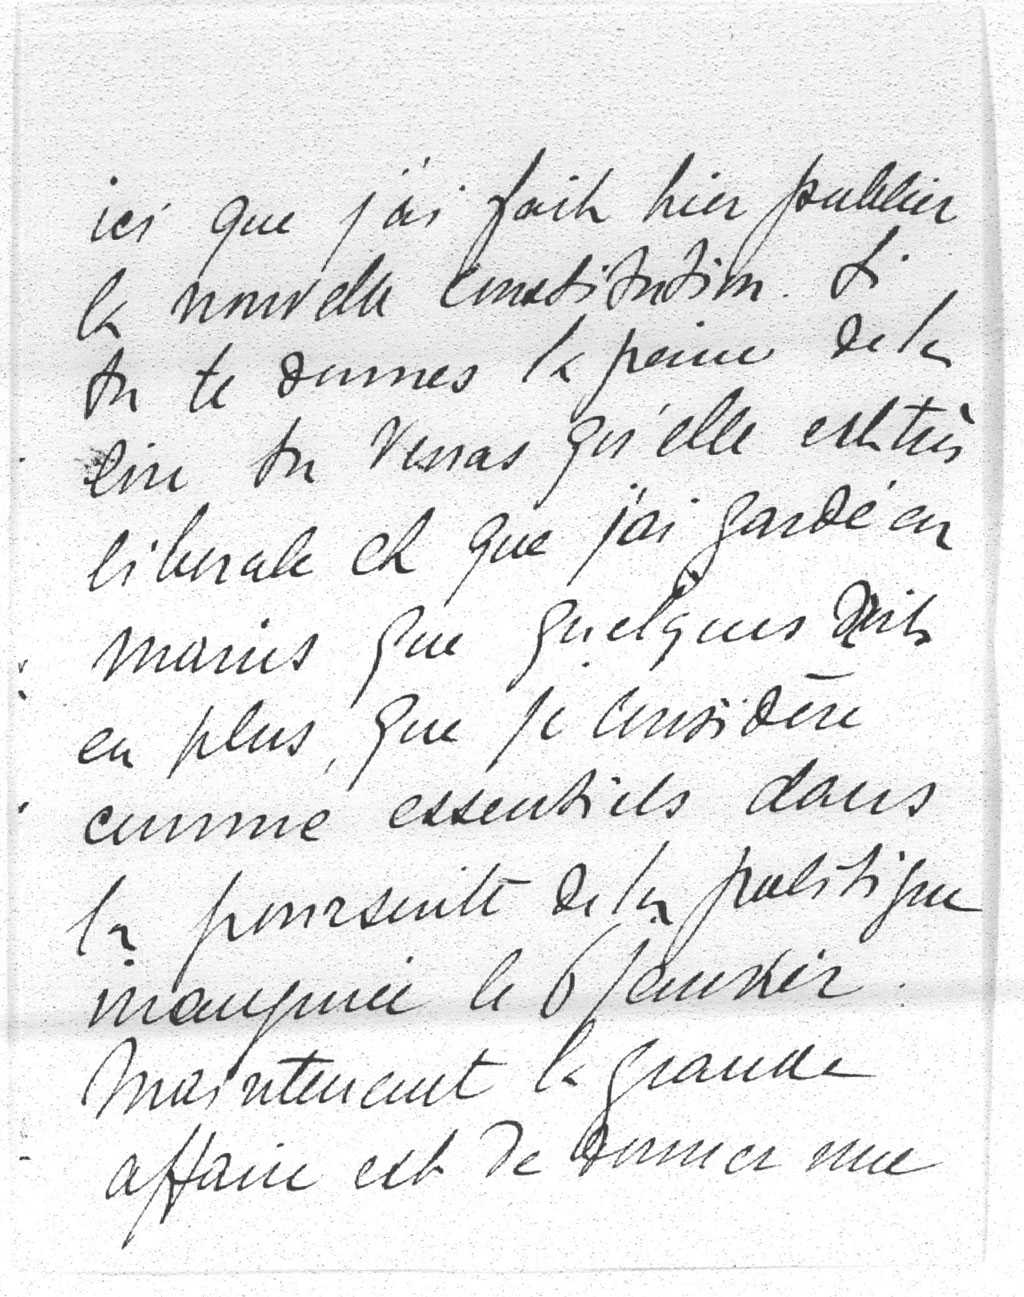 ici que j'ai fait hier publier
la nouvelle constitution. Si
tu te donnes la peine de la
lire tu verras qu'elle est très
liberale et que j'ai gardé en
mains que quelques droits
en plus, que je considère
comme essentiels dans
la poursuite de la politique
inaugurée le 6 Janvier.
Maintenant la grande
affaire est de donner une